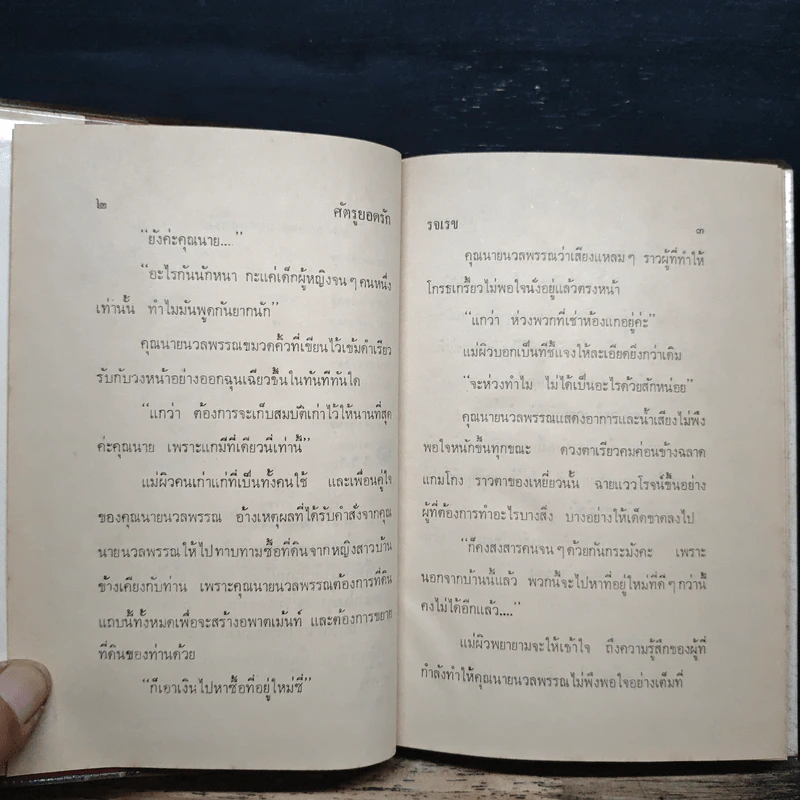 ๒
ศัตรูยอดรัก
“ยังค่ะคุณนาย....”
“อะไรกันนักหนา กะแค่เด็กผู้หญิงจน ๆ คนหนึ่ง
เท่านั้น ทำไมมันพูดกันยากนัก”
คุณนายนวลพรรณขมวดคิ้วที่เขียนไว้เข้มดำเรียว
รับกับวงหน้าอย่างออกฉุนเฉียวขึ้นในทันทีทันใด
“แกว่า ต้องการจะเก็บสมบัติเก่าไว้ให้นานที่สุด
ค่ะคุณนาย เพราะแกมีที่เดียวนี่เท่านี้”
แม่ผิวคนเก่าแก่ที่เป็นทั้งคนใช้ และเพื่อนคู่ใจ
ของคุณนายนวลพรรณ อ้างเหตุผลที่ได้รับคำสั่งจากคุณ
นายนวลพรรณให้ไปทาบทามซื้อที่ดินจากหญิงสาวบ้าน
ข้างเคียงกับท่าน เพราะคุณนายนวลพรรณต้องการที่ดิน
แถบนี้ทั้งหมดเพื่อจะสร้างอพาตเม้นท์ และต้องการขยาย
ที่ดินของท่านด้วย
“ก็เอาเงินไปหาซื้อที่อยู่ใหม่ซี่”
รจเรข
๓
คุณนายนวลพรรณว่าเสียงแหลม ๆ ราวผู้ที่ทำให้
โกรธเกรี้ยวไม่พอใจนั่งอยู่แล้วตรงหน้า
“แกว่า ห่วงพวกที่เช่าห้องแกอยู่ค่ะ”
แม่ผิวบอกเป็นทีชี้แจงให้ละเอียดยิ่งกว่าเดิม
“จะห่วงทำไม ไม่ได้เป็นอะไรด้วยสักหน่อย”
คุณนายนวลพรรณแสดงอาการและน้ำเสียงไม่พึง
พอใจหนักขึ้นทุกขณะ ดวงตาเรียวคมค่อนข้างฉลาด
แกมโกง ราวตาของเหยี่ยวนั้น ฉายแววโรจน์ขึ้นอย่าง
ผู้ที่ต้องการทำอะไรบางสิ่ง บางอย่างให้เด็ดขาดลงไป
“ก็คงสงสารคนจน ๆ ด้วยกันกระมังคะ เพราะ
นอกจากบ้านนี้แล้ว พวกนี้จะไปหาที่อยู่ใหม่ที่ดี ๆ กว่านี้
คงไม่ได้อีกแล้ว....”
แม่ผิวพยายามจะให้เข้าใจ ถึงความรู้สึกของผู้ที่
กำลังทำให้คุณนายนวลพรรณไม่พึงพอใจอย่างเต็มที่